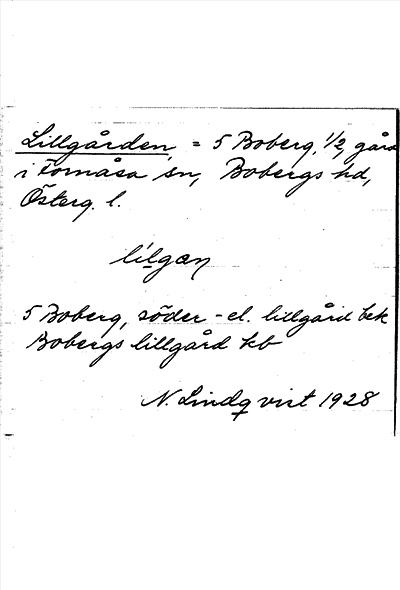 Lillgården, = 5 Boberg, 1/2, gård
i Fornåsa sn, Bobergs hd,
Österg. l.
lìlgan
5 Boberg, söder- el. lillgård bek
Bobergs lillgård kb
N. Lindqvist 1928